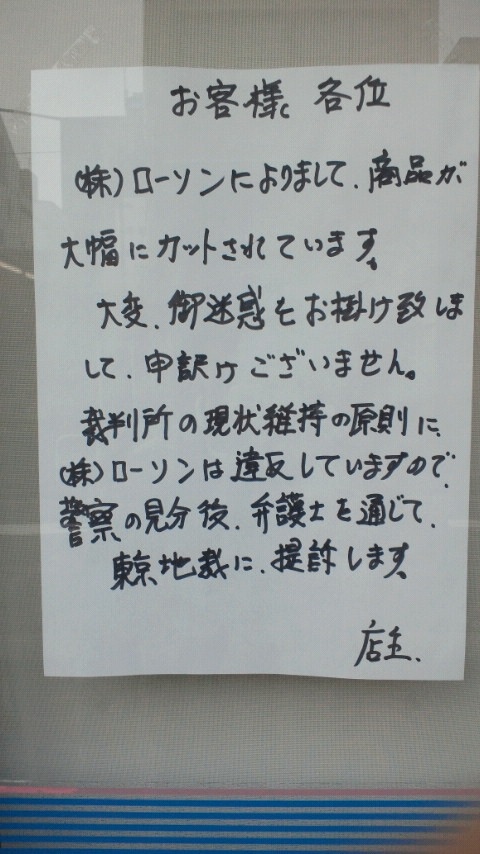 お客様 各位
(株)ローソンによりまして、商品が
大幅にカットされています。
大変、御迷惑をお掛け致しま
して、申訳けございません。
裁判所の現状維持の原則に、
(株)ローソンは違反していますので、
警察の見分後、弁護士を通じて、
東京地裁に、提訴します。
店主、